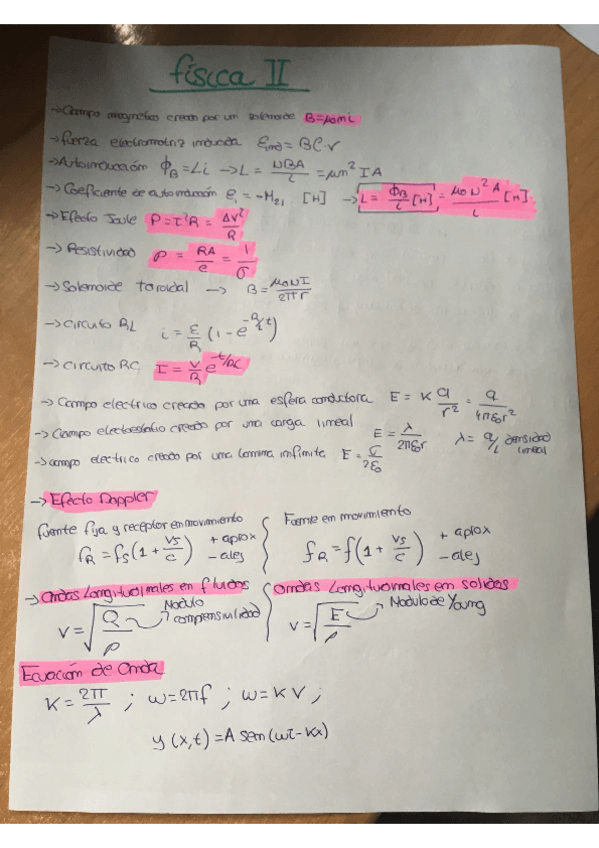 física II
→Campo magnético creado por un solenoide B=μ₀ni
→fuerza electromotriz inducida εind = BC·v
→Autoinducción ɸB=Li →L = NBA/i = μn² I A
→Coeficiente de autoinducción εi = -M21 [H] → L = ɸB/i [H] = μ₀N²A/L [H]
→Efecto Joule P=I²R = ΔV²/R
→Resistividad ρ = RA/e = 1/σ
→Solenoide toroidal → B = μ₀NI/2πr
→circuito RL i = ε/R (1-e^-R/L t)
→circuito RC I = V/R e^-t/RC
→Campo electrico creado por una esfera conductora E = K q/r² = q/4πε₀r²
→Campo electrostático creado por una carga lineal E = λ/2πε₀r λ = q/L densidad lineal
→campo electrico creado por una lamina infinita E = σ/2ε₀
→Efecto Doppler
fuente fija y receptor en movimiento
fR = fs(1+ vs/c) + aprox - alej
Fuente en movimiento
fR = f(1+ vs/c) + aprox - alej
→Ondas Longitudinales en fluidos
v = √Q/ρ → Modulo compresividad
Ondas Longitudinales en solidos
v = √E/ρ → Modulo de Young
Ecuación de Onda
K = 2π/λ ; ω=2πf ; ω=KV ;
y(x,t) = A sen(ωt-Kx)